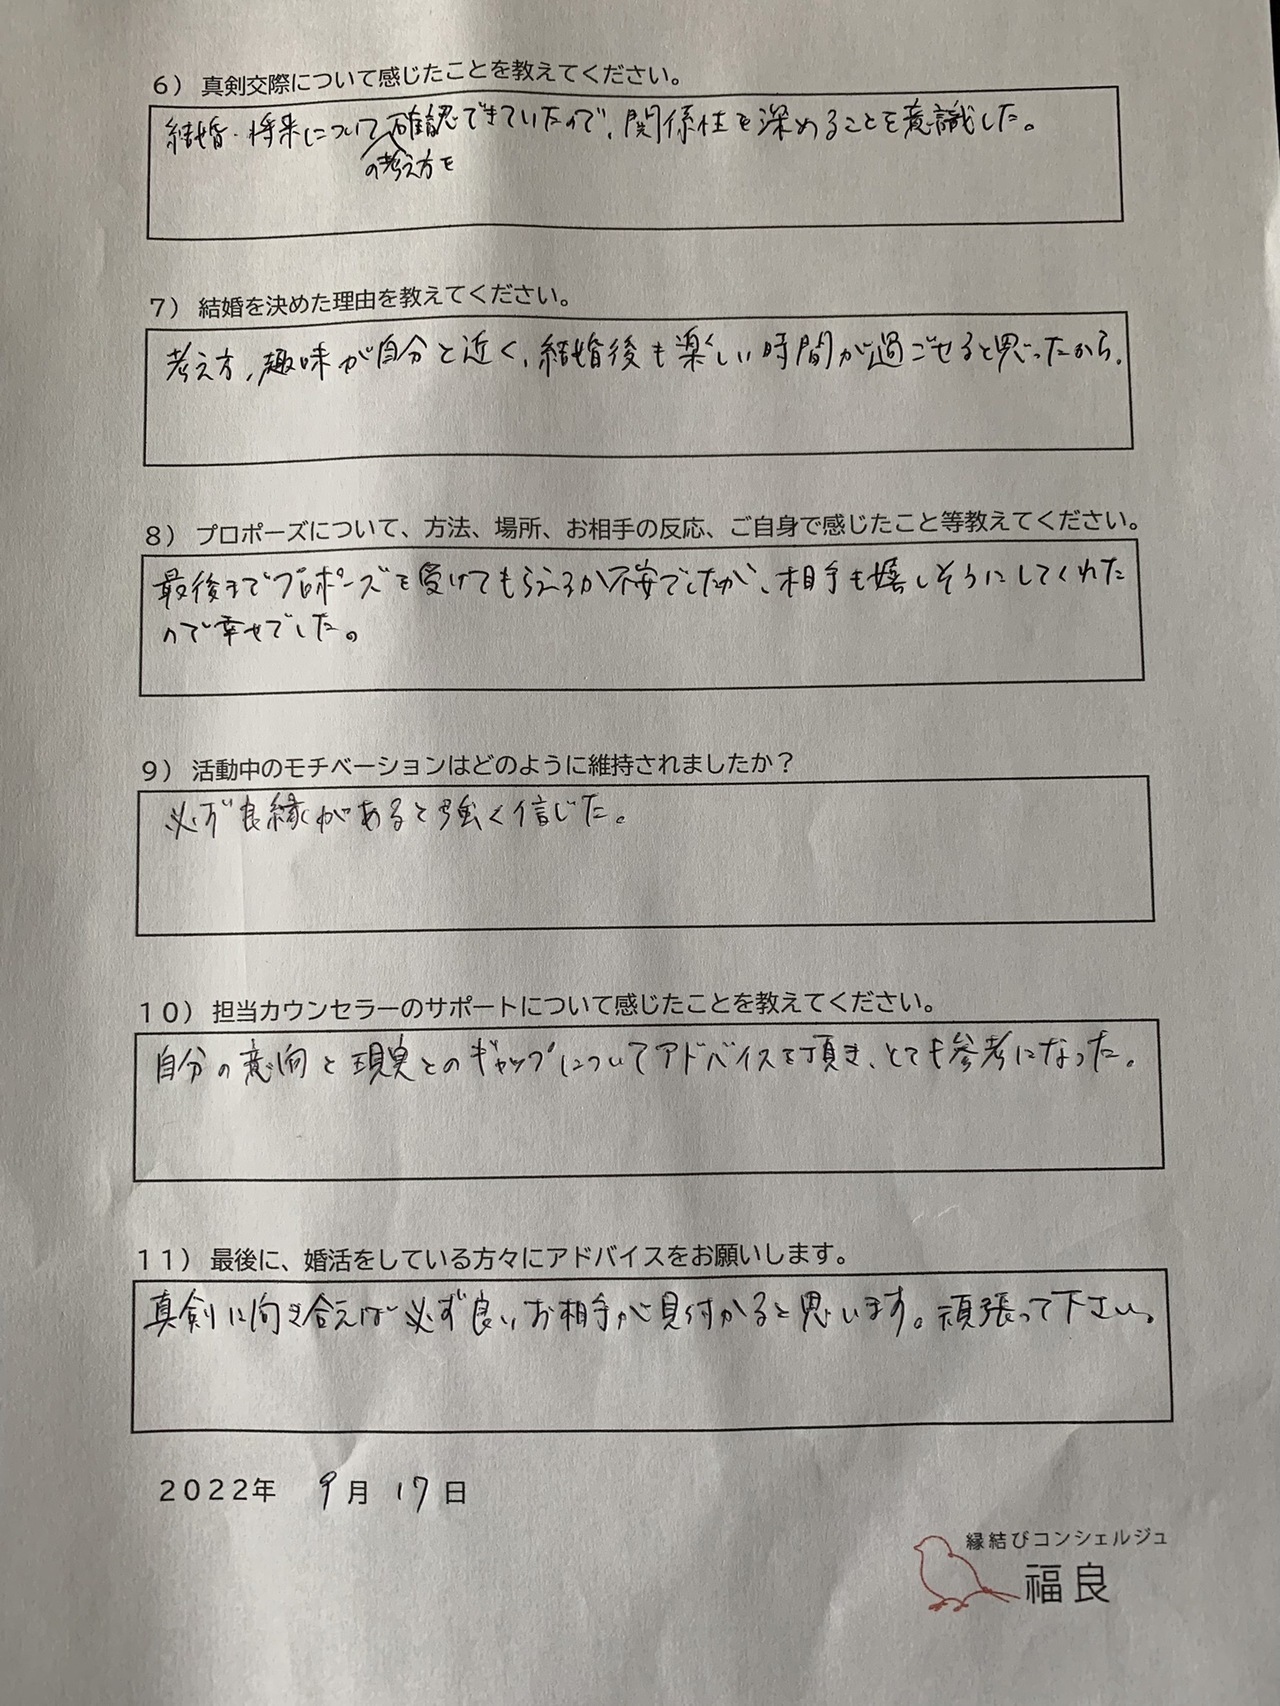 6）真剣交際について感じたことを教えてください。
結婚・将来について確認できていたので、関係性を深めることを意識した。
の考え方を
7）結婚を決めた理由を教えてください。
考え方、趣味が自分と近く、結婚後も楽しい時間が過ごせると思ったから。
8）プロポーズについて、方法、場所、お相手の反応、ご自身で感じたこと等教えてください。
最後までプロポーズを受けてもらえるか不安でしたが、相手も嬉しそうにしてくれた
ので幸せでした。
9）活動中のモチベーションはどのように維持されましたか？
必ず良縁があると強く信じた。
10）担当カウンセラーのサポートについて感じたことを教えてください。
自分の意向と現実とのギャップについてアドバイスを頂き、とても参考になった。
11）最後に、婚活をしている方々にアドバイスをお願いします。
真剣に向き合えば必ず良いお相手が見付かると思います。頑張って下さい。
2022年 9月 17日
縁結びコンシェルジュ
福良